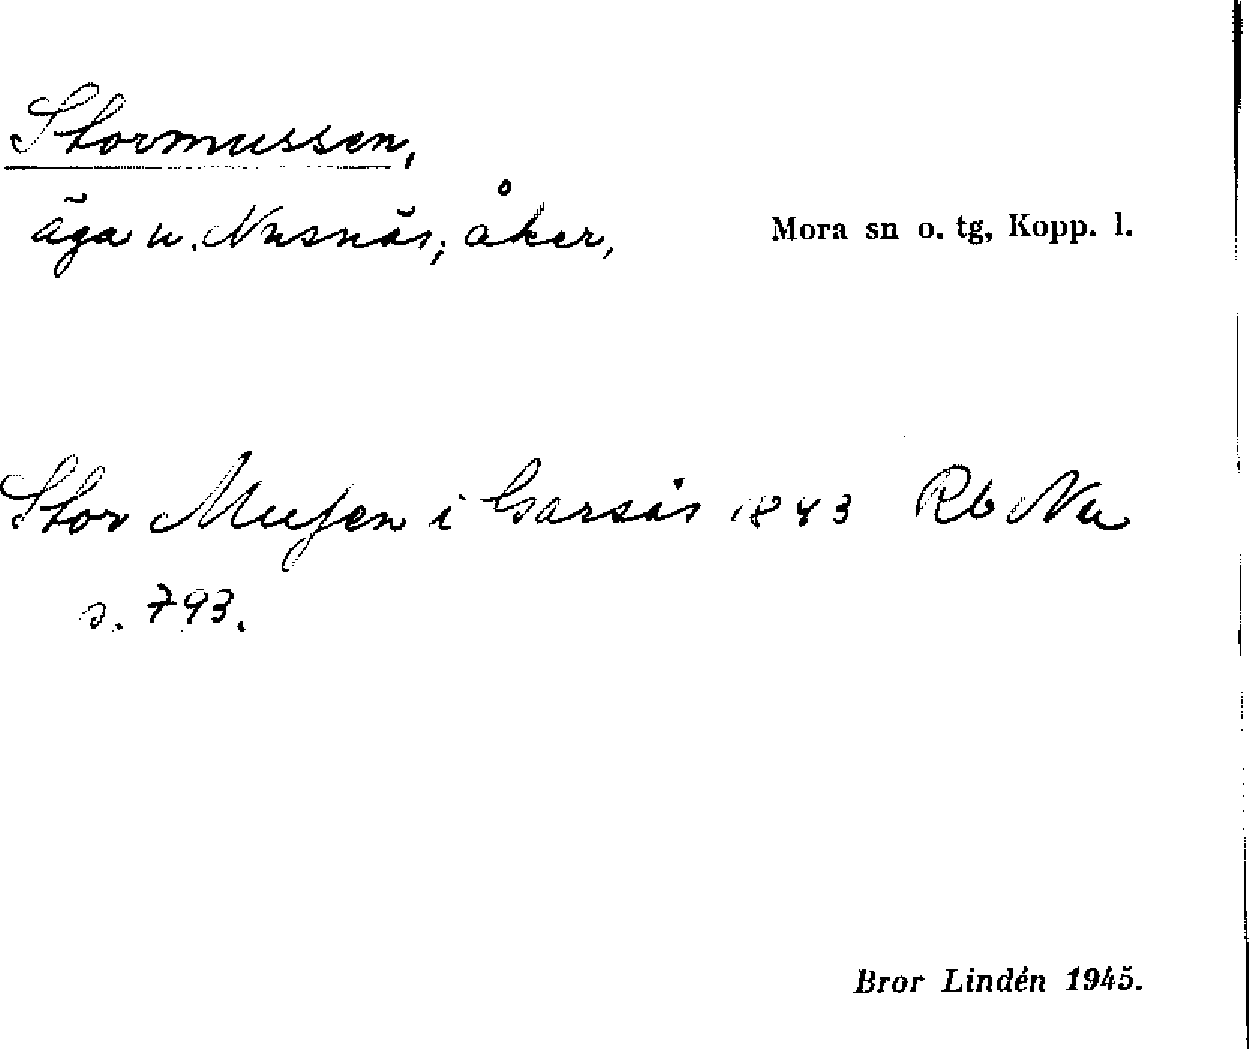 Stormussen,
äga u. Nusnäs; åker,
Mora sn o. tg, Kopp. l.
Stor Mussen i Garsås 1843 Rb Nu
s. 793.
Bror Lindén 1945.